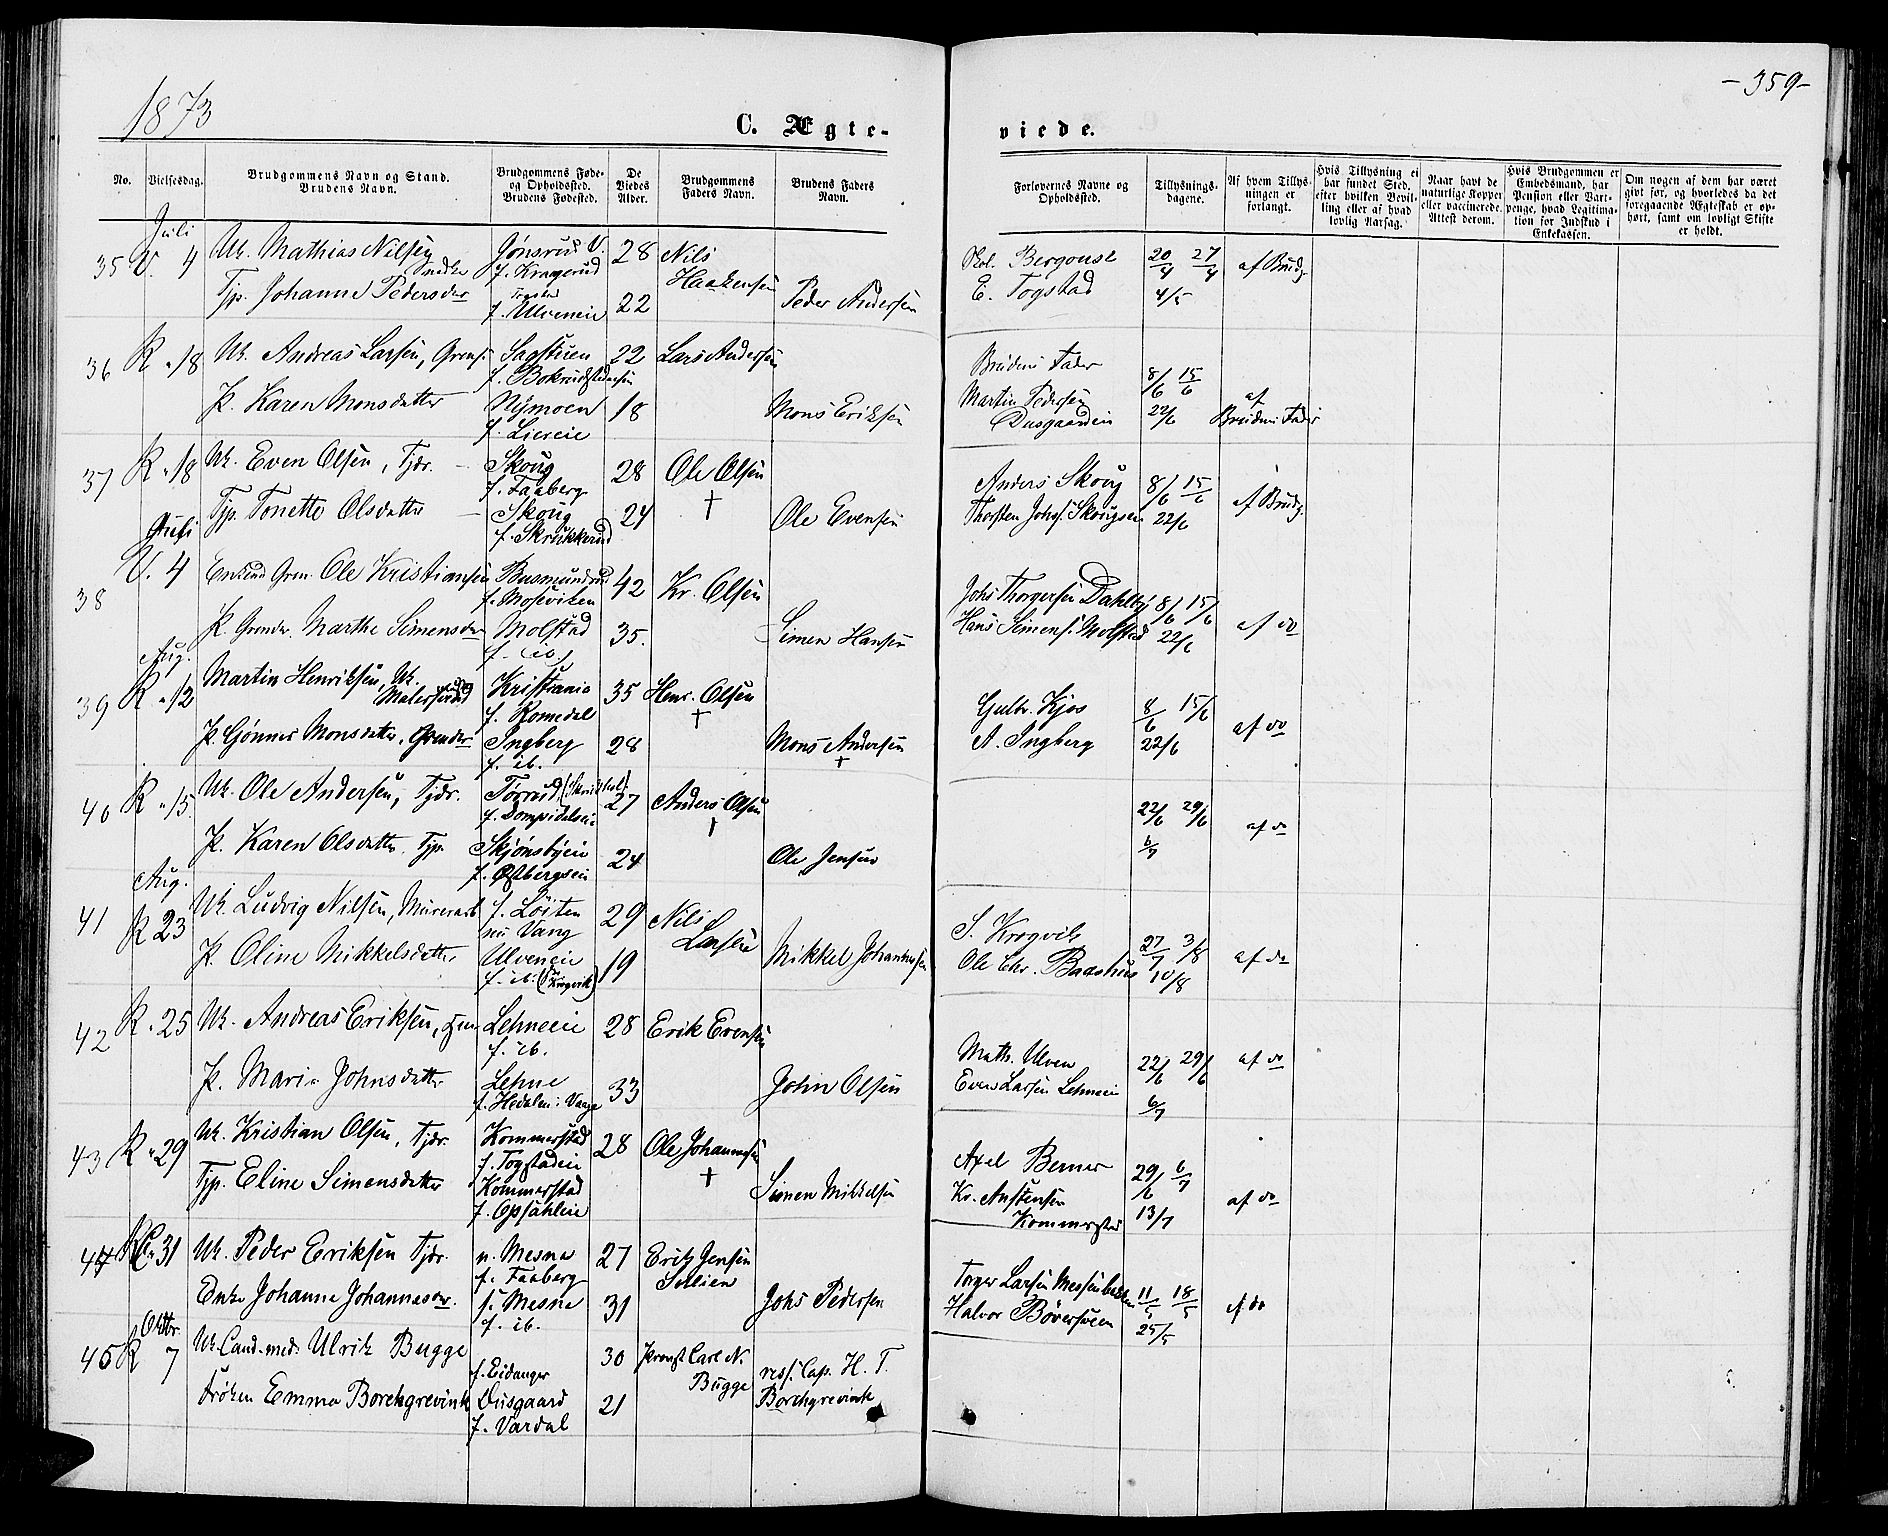 1873
-359-
C. Ægte-
viede.
No.
Vielsesdag.
Brudgommens Navn og Stand.
Brudens Navn.
Brudgommens Føde-
og Opholdssted.
Brudens Fødested.
De
Viedes
Alder.
Brudgommens
Faders Navn.
Brudens Faders
Navn.
Forlovernes Navne og
Opholdssted.
Tillysnings-
dagene.
Af hvem Tillys-
ningen er
forlangt.
Hvis Tillysning ei
har fundet Sted,
efter hvilken Bevil-
ling eller af hvad
lovlig Aarsag.
Naar havt de
naturlige Kopper
eller vaccinerede.
Attest derom.
Hvis Brudgommen er
Embedsmand, har
Pension eller Vart-
penge, hvad Legitima-
tion for Indskud i
Enkekassen.
Om nogen af dem har været
gift før, og hvorledes da det
foregaaende Ægteskab er op-
hørt, samt om lovligt Skifte
er holdt.
Juli
35 V. 4 Uk. Mathias Nilsen Jønsrud V. 28 Nils
Snedker f. Kragerud Haakensen
Tjp. Johanne Pedersdtr f. Ulveneie 22 Peder Andersen
E. Togstad
20/4 27/4
4/5
af Brudg
36 R " 18 Uk. Andreas Larsen, Grensk. Sagstuen 22 Lars Andersen
P. Karen Monsdatter Nymoen 18 Mons Eriksen
f. Liereie
Brudens Fader
Martin Pedersen
8/6 15/6
22/6
af
Brudens Fader
37 R " 18 Uk. Even Olsen, Tjdr. Skoug 28 Ole Olsen
f. Faaberg †
Tjp. Tonette Olsdatter Skoug 24 Ole Evensen
f. Skrukkerud
Anders Skoug
Thorsten Johs. Skougseie
8/6 15/6
22/6
af Brudg
Juli
38 V. 4 Enkem. Grm. Ole Kristiansen Busmundrud 42 Kr. Olsen
f. Moseviken
P. Grmdr. Marthe Simensdtr Molstad 35. Simen Hansen
f. ib.
Johs Thorgersen Dahlby
Hans Simens. Molstad
8/6 15/6
22/6
af do
Aug.
39 R " 12 Martin Henriksen, Uk. Kristiania 35 Henr. Olsen
Malersvend f. Romedal †
P. Gønner Monsdatter, Grmdr Ingberg 28 Mons Andersen
f. ib. †
Gulbr. Kjos
A. Ingberg
8/6 15/6
22/6
af do
40 R " 15. Uk. Ole Andersen, Tjdr. Tørrud 27 Anders Olsen
†
P. Karen Olsdatter. Tjp. Skjønsbyeie 24 Ole Jensen
f. Østbergseie
22/6 29/6
6/7
af do
Aug.
41 R 23 Uk. Ludvig Nilsen, Murerarb f. Løiten 29 Nils
nu Vang Larsen
P. Oline Mikkelsdatter Ulveneie 19 Mikkel Johannesen
f. ib. (Krogvik)
S. Krogvik
Ole Chr. Baashus
27/7 3/8
10/8
af do
42 R " 25 Uk. Andreas Eriksen, Lehneeie 28 Erik Evensen
f. ib.
P. Marie Johnsdatter Lehne 33 John Olsen
f. Hedalen i Vaage
Math. Ulven
Even Larsen Lehneeie
22/6 29/6
6/7
af do
43 R " 29 Uk. Kristian Olsen, Tjdr. Kommerstad 28 Ole Johannesen
f. Togstadeie †
Tjp. Eline Simensdatter Kommerstad Simen Mikkelsen
f. Opsahleie
Axel Berner
Kr. Anstensen
Kommerstad
29/6 6/7
13/7
af do
44 R " 31 Uk. Peder Eriksen Tjdr. n. Mesna 27 Erik Jensen
f. Faaberg Solien
Enke Johanne Johannesdtr. s. Mesna 31 Johs Pedersen
f. ib.
Torger Larsen Messenbakken
Halvor Bøversveen
11/5 18/5
25/5
af do
Oktbr.
45 R 7 Uk. Cand. med. Ulrik Bugge f. Eidanger 30 Provst Carl N.
Bugge
Frøken Emma Borchgrevink Dusgaard 21 res. Cap. H. T.
f. Vardal Borchgrevink